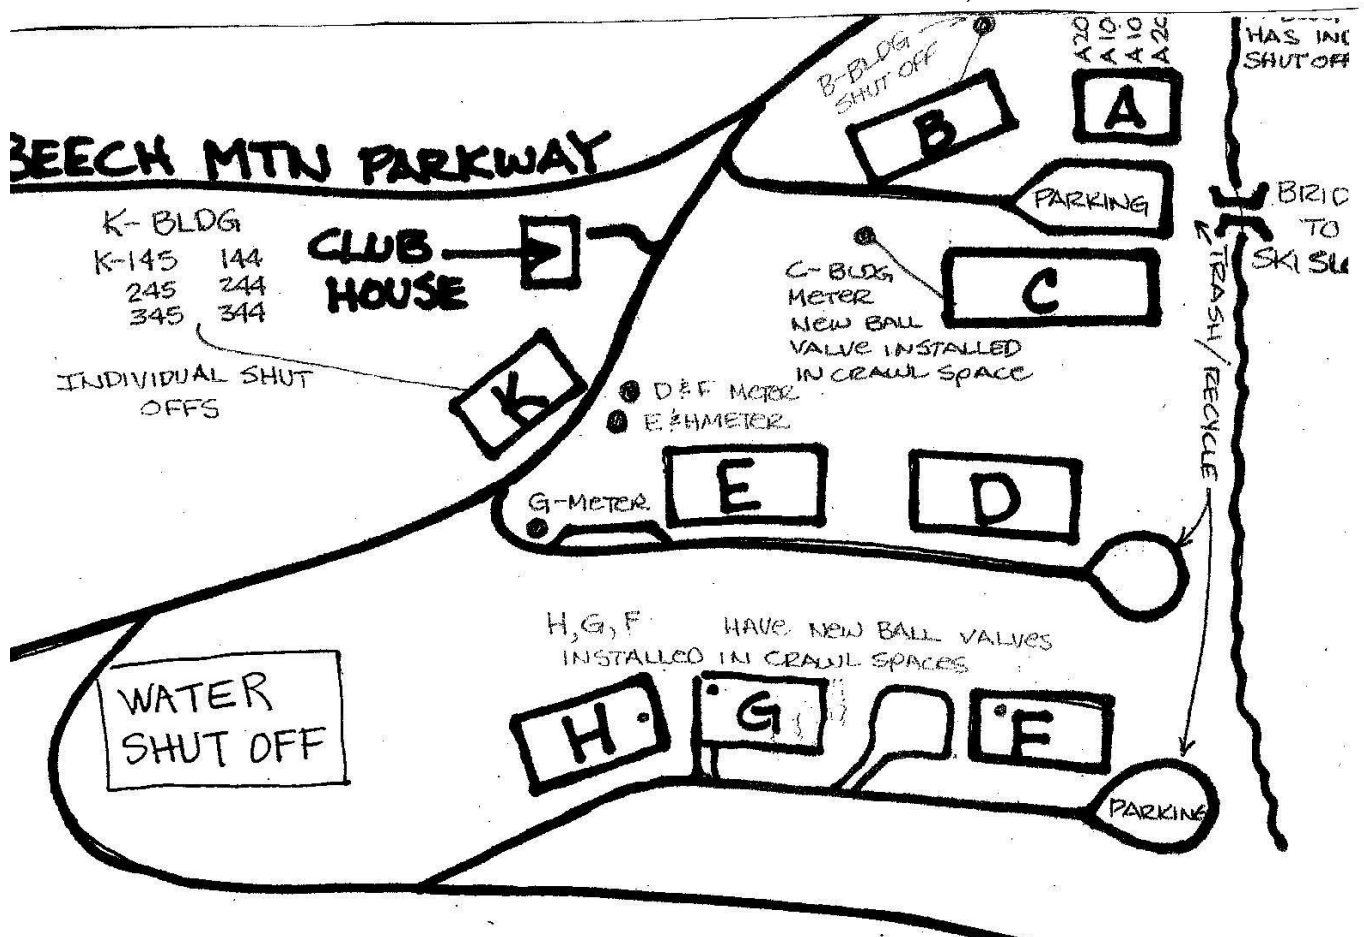 B-BLDG
SHUT OFF
A20
A10
A10
A20
HAS IN
SHUT OFF
B
A
BEECH MTN PARKWAY
PARKING
BRID
TO
SKI SL
K-BLDG
K-145 144
245 244
345 344
INDIVIDUAL SHUT
OFFS
CLUB
HOUSE
C-BLDG
METER
NEW BALL
VALVE INSTALLED
IN CRAWL SPACE
C
TRASH/RECYCLE
K
D&F METER
E&H METER
G-METER
E
D
H,G,F HAVE NEW BALL VALVES
INSTALLED IN CRAWL SPACES
WATER
SHUT OFF
H
G
F
PARKING